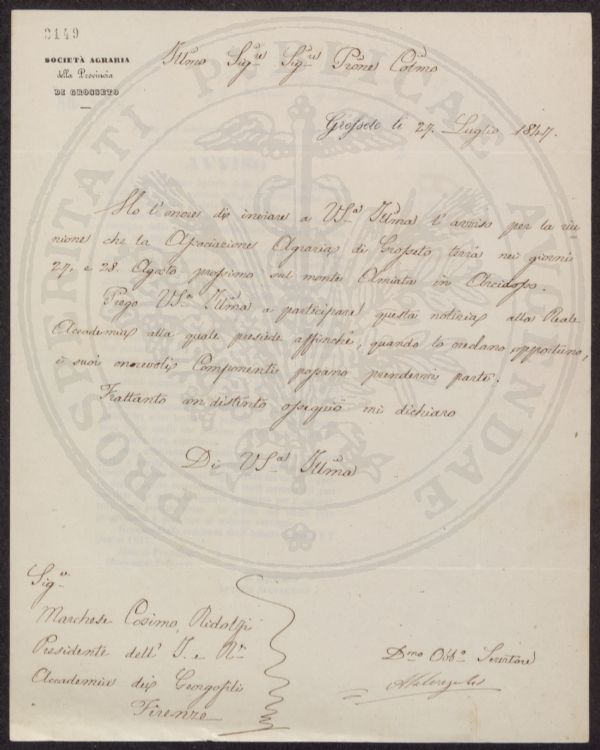 2149
SOCIETÀ AGRARIA
della Provincia
DI GROSSETO
Illmo Sigre Sigre Prone Colmo
Grosseto li 27. Luglio 1847.
Ho l'onore di inviare a VSa Illma l'avviso per la riu-
nione che la Associazione Agraria di Grosseto terrà nei giorni
27. e 28. Agosto prossimo sul monte Amiata in Arcidosso.
Prego VSa Illma a participare questa notizia alla Reale
Accademia alla quale presiede affinchè, quando lo credano opportuno,
i suoi onorevoli Componenti possano prendervi parte.
Frattanto con distinto ossequio mi dichiaro
Di VSa Illma
Sigre
Marchese Cosimo Ridolfi
Presidente dell' I. e R.
Accademia dei Georgofili
Firenze
Dmo Obbo Servitore
PROSPERITATI PUBLICAE AUGENDAE